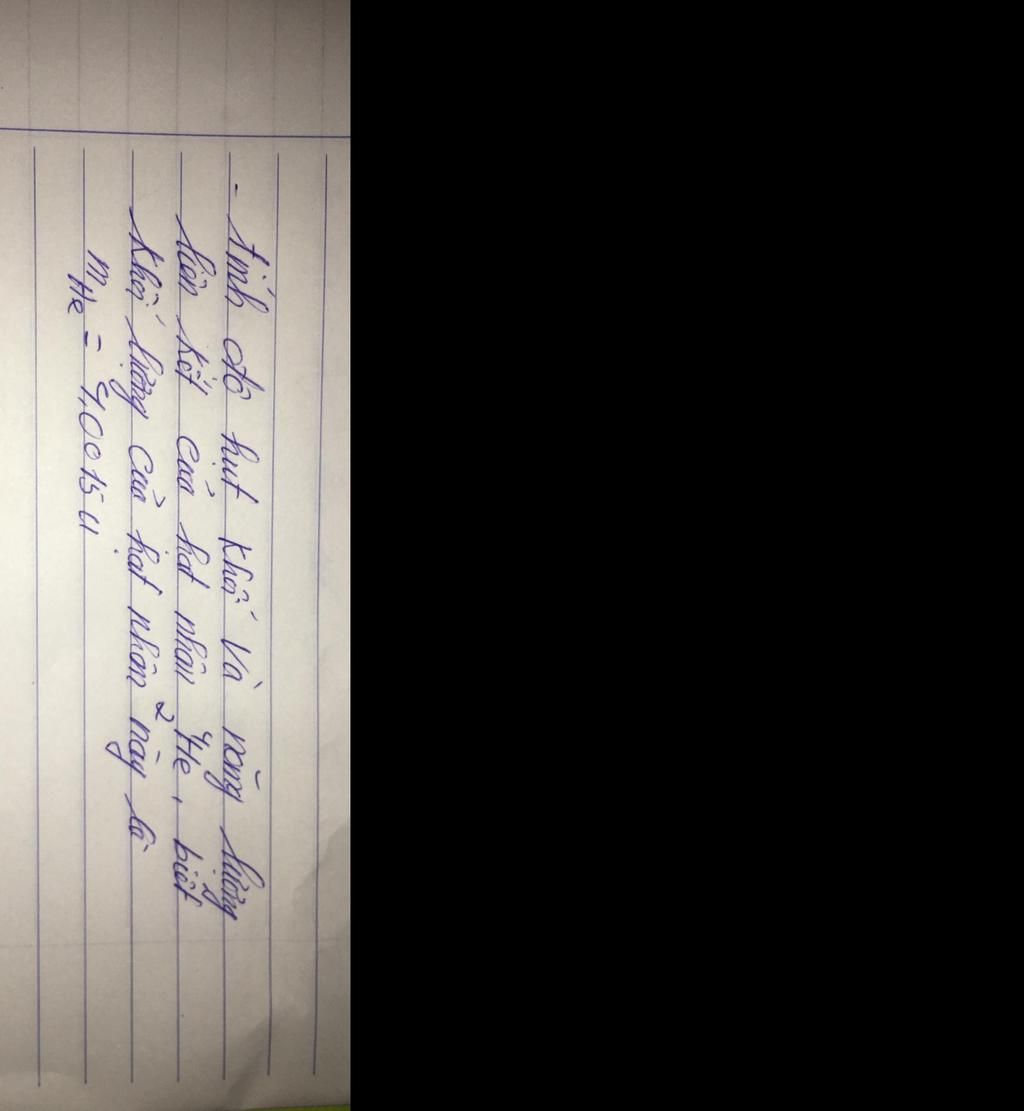 - tính độ hụt khối và năng lượng
liên kết của hạt nhân ⁴₂He, biết
khối lượng của hạt nhân này là
mHe = 4,0015 u